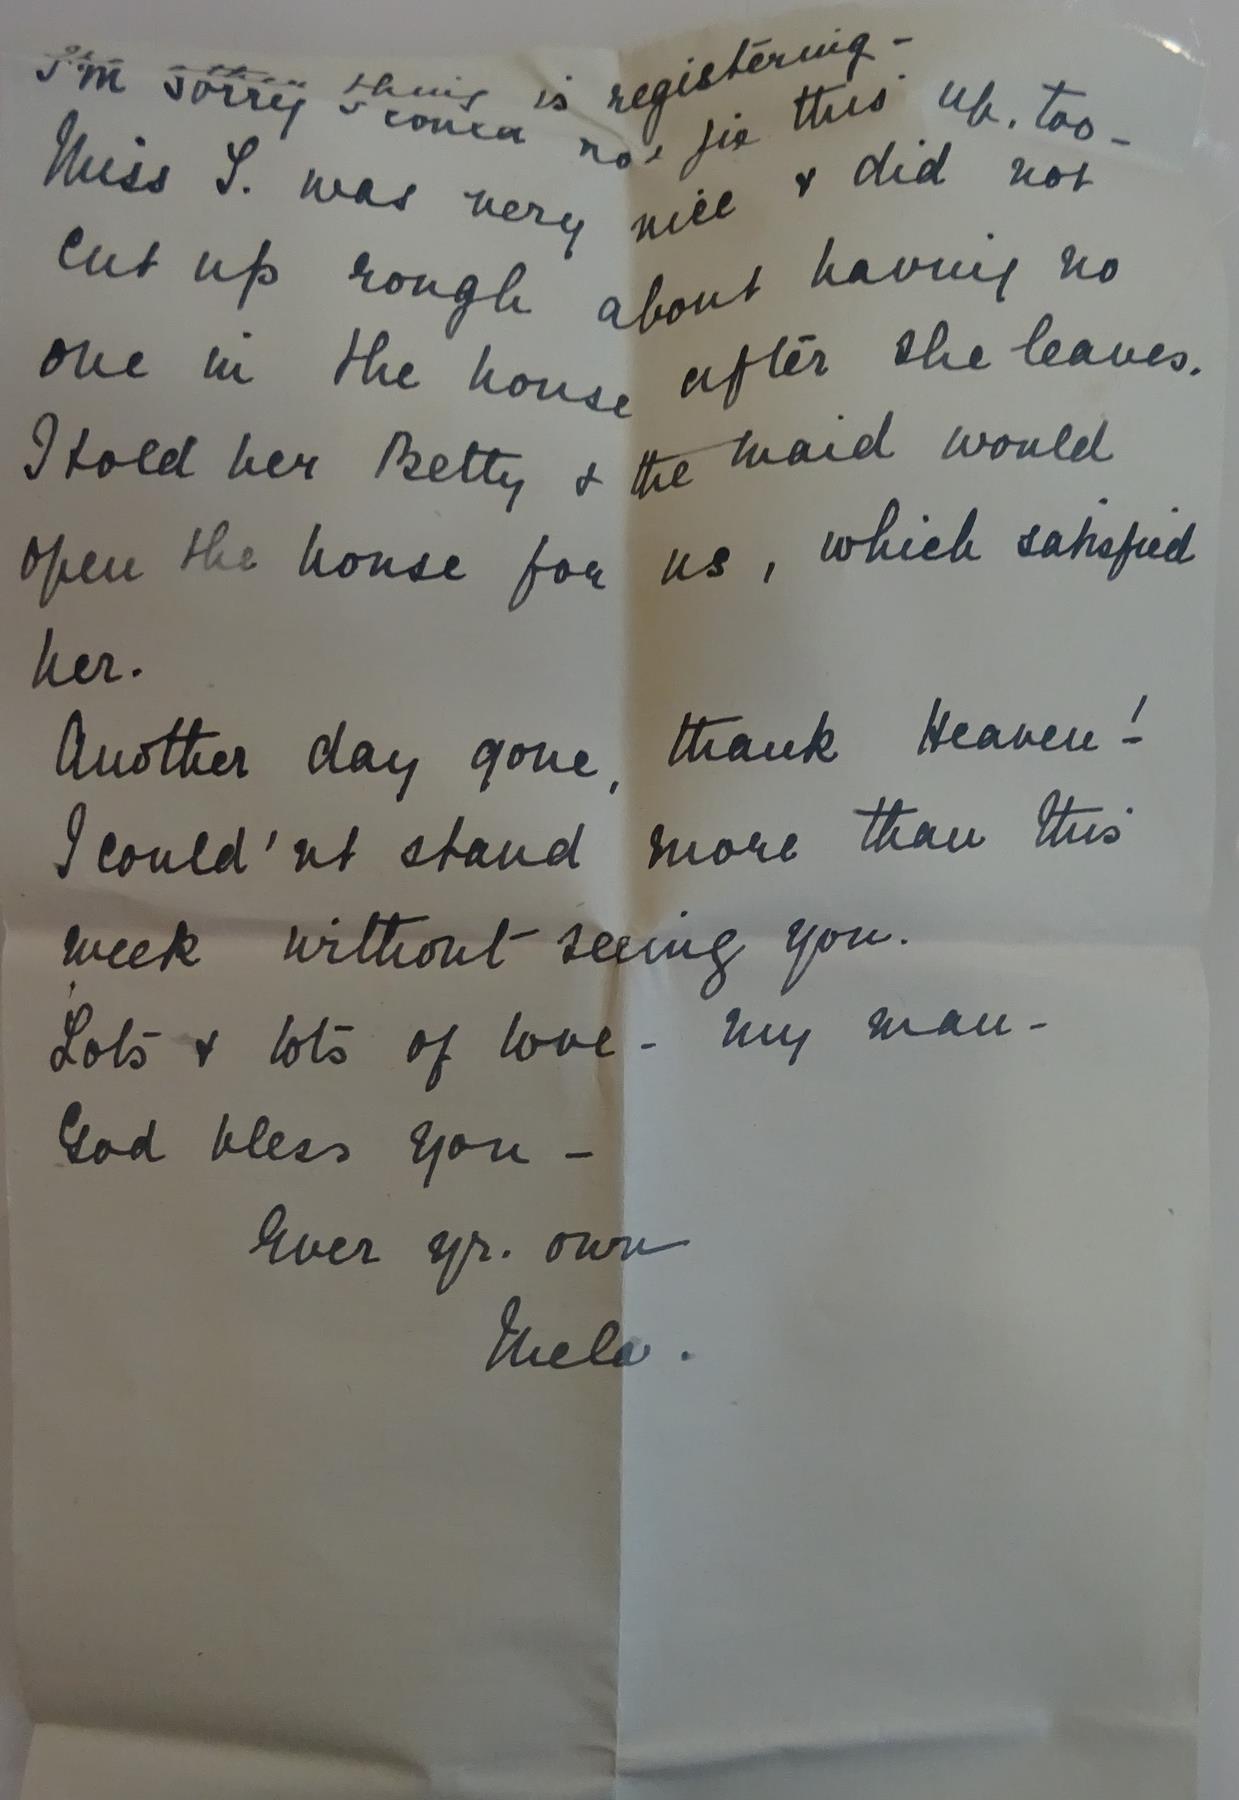 thing is registering -
I'm sorry I could not fix this up, too -
Miss S. was very nice & did not
cut up rough about having no
one in the house after she leaves.
I told her Betty & the maid would
open the house for us, which satisfied
her.
Another day gone, thank Heaven!
I could'nt stand more than this
week without seeing you.
Lots & lots of love - my man -
God bless you -
Ever yr. own
Mela.